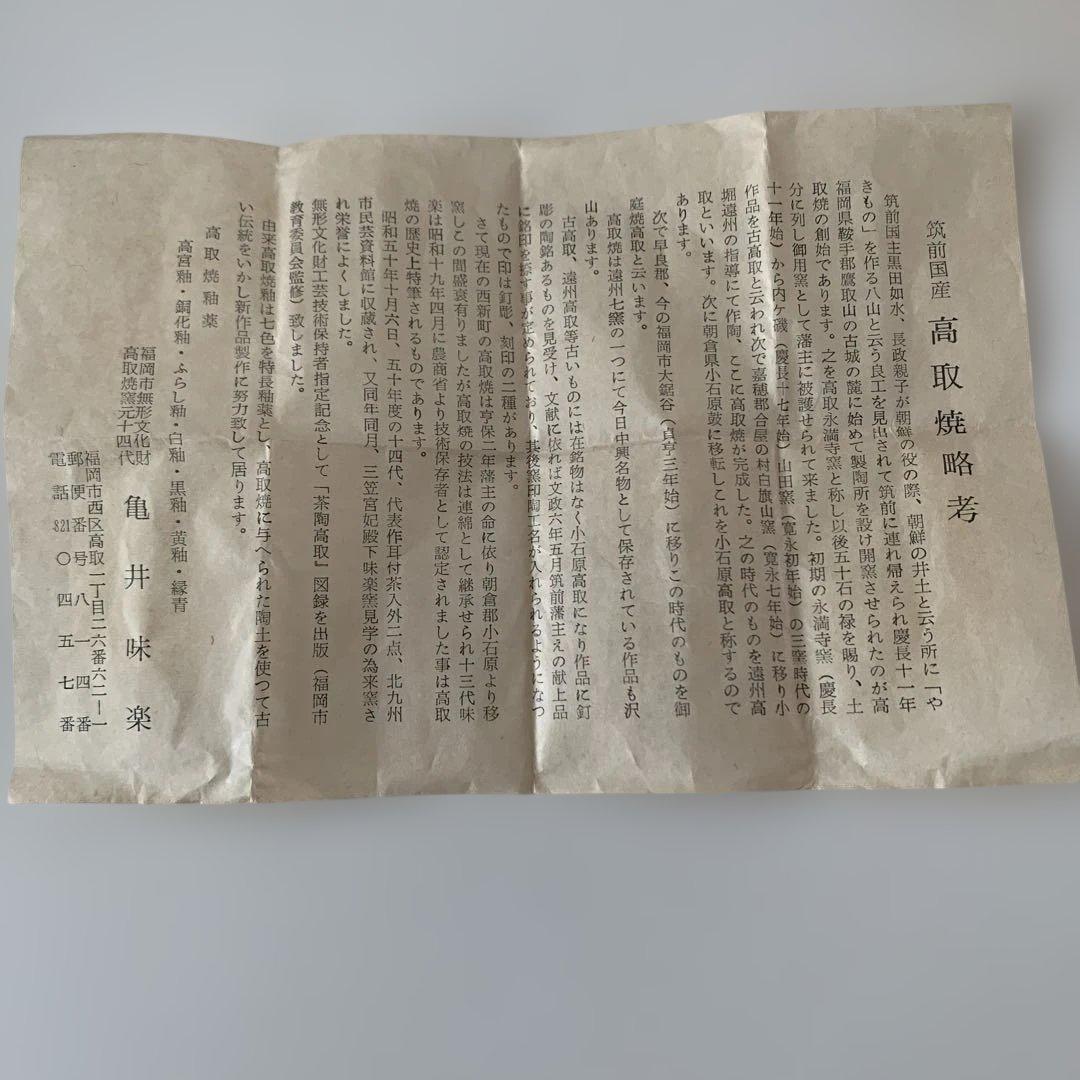 筑前国産 高取焼略考
筑前国主黒田如水、長政親子が朝鮮の役の際、朝鮮の井土と云う所に「や
きもの」を作る八山と云う良工を見出されて筑前に連れ帰えられ慶長十一年
福岡県鞍手郡鷹取山の古城の麓に始めて製陶所を設け開窯させられたのが高
取焼の創始であります。之を高取永満寺窯と称し以後五十石の禄を賜り、士
分に列し御用窯として藩主に被護せられて来ました。初期の永満寺窯（慶長
十一年始）から内ケ磯（慶長十七年始）山田窯（寛永初年始）の三窯時代の
作品を古高取と云われ次で嘉穂郡合屋の村白旗山窯（寛永七年始）に移り小
堀遠州の指導にて作陶、ここに高取焼が完成した。之の時代のものを遠州高
取といいます。次に朝倉県小石原鼓に移転しこれを小石原高取と称するので
あります。
次で早良郡、今の福岡市大鋸谷（貞亨三年始）に移りこの時代のものを御
庭焼高取と云います。
高取焼は遠州七窯の一つにて今日中興名物として保存されている作品も沢
山あります。
古高取、遠州高取等古いものには在銘物はなく小石原高取になり作品に釘
彫の陶銘あるものを見受け、文献に依れば文政六年五月筑前藩主えの献上品
に銘印を捺す事が定められており、其後窯印陶工名が入れられるようになつ
たもので印は釘彫、刻印の二種があります。
さて現在の西新町の高取焼は享保二年藩主の命に依り朝倉郡小石原より移
窯しこの間盛衰有りましたが高取焼の技法は連綿として継承せられ十三代味
楽は昭和十九年四月に農商省より技術保存者として認定されました事は高取
焼の歴史上特筆されるものであります。
昭和五十年十月六日、五十年度の十四代、代表作耳付茶入外二点、北九州
市民芸資料館に収蔵され、又同年同月、三笠宮妃殿下味楽窯見学の為来窯さ
れ栄誉によくしました。
無形文化財工芸技術保持者指定記念として「茶陶高取」図録を出版（福岡市
教育委員会監修）致しました。
由来高取焼釉は七色を特長釉薬とし、高取焼に与へられた陶土を使つて古
い伝統をいかし新作品製作に努力致して居ります。
高取焼釉薬
高宮釉・銅化釉・ふらし釉・白釉・黒釉・黄釉・縁青
福岡市無形文化財
高取焼窯元十四代 亀井味楽
福岡市西区高取一丁目二六番六二ー一
郵便番号八一四番
電話821〇四五七番